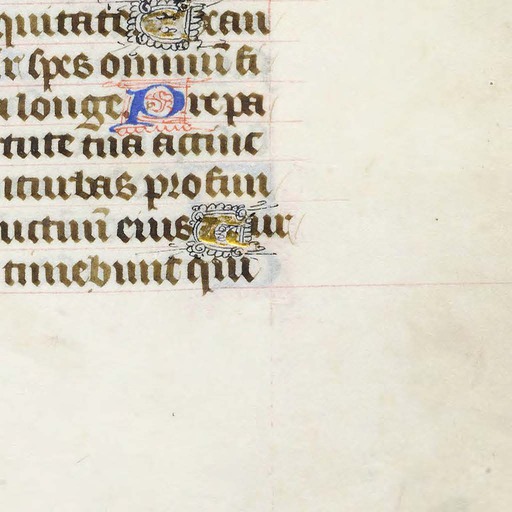 quitate Exau
r spes omniū fi
longe. Prepa
tute tua accinc
turbas profun
uctuū eius Tur
timebunt qui